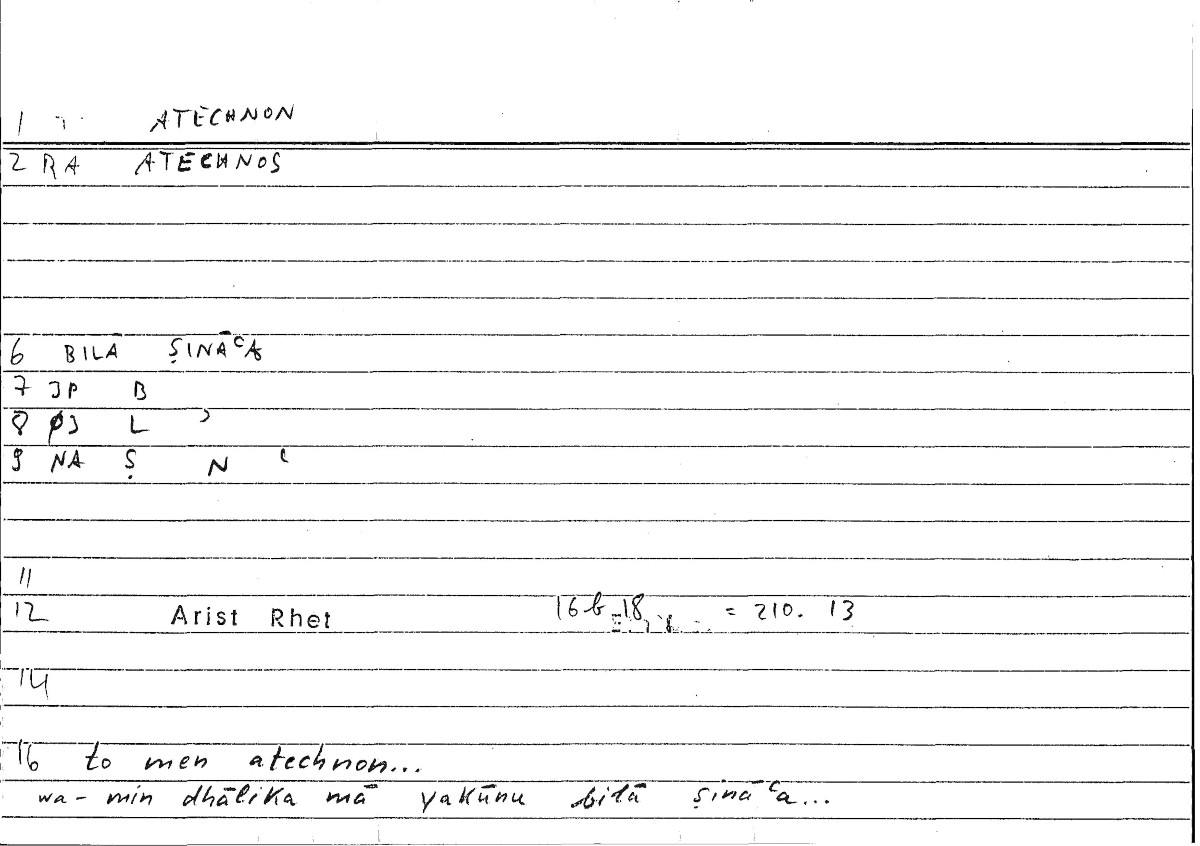 1 ATECHNON
2 RA ATECHNOS
6 BILĀ ṢINĀʿA
7 JP B
8 ØJ L ʾ
9 NA Ṣ N ʿ
11
12 Arist Rhet 16b 18 = 210. 13
14
16 to men atechnon...
wa- min dhālika mā yakūnu bilā ṣināʿa...